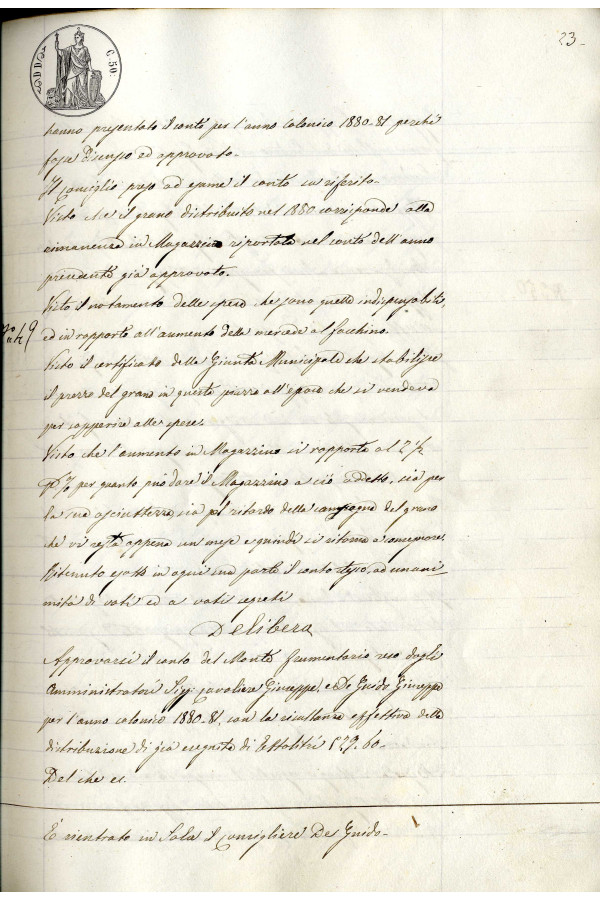 23
C. 50.
hanno presentato il conto per l'anno colonico 1880-81 perchè
fosse discusso ed approvato.
Il Consiglio preso ad esame il conto su riferito.
Visto che il grano distribuito nel 1880 corrisponde alla
rimanenza in Magazzino riportata nel conto dell'anno
precedente già approvato.
Visto il notamento delle spese che sono quelle indispensabili,
ed in rapporto all'aumento della mercede al facchino.
Visto il certificato della Giunta Municipale che stabilisce
il prezzo del grano in questa piazza all'epoca che si vendeva
per sopperire alle spese.
Visto che l'aumento in Magazzino si rapporta al 2 1/2
p% per quanto può dare il Magazzino a ciò addetto, sia per
la sua asciuttezza, sia pel ritardo della campagna del grano
che vi resta appena un mese e quindi si ritorna a
Ritenuto esatto in ogni sua parte il conto stesso, ad unani-
mità di voti ed a voti segreti
Delibera
Approvarsi il conto del Monte frumentario reso dagli
Amministratori Sigg: Cavaliere Giuseppe, e De Guido Giuseppe
per l'anno colonico 1880-81, con la risultanza effettiva della
distribuzione di già eseguita di Ettolitri 529.60.
Del che es.
È rientrato in Sala il Consigliere De Guido-